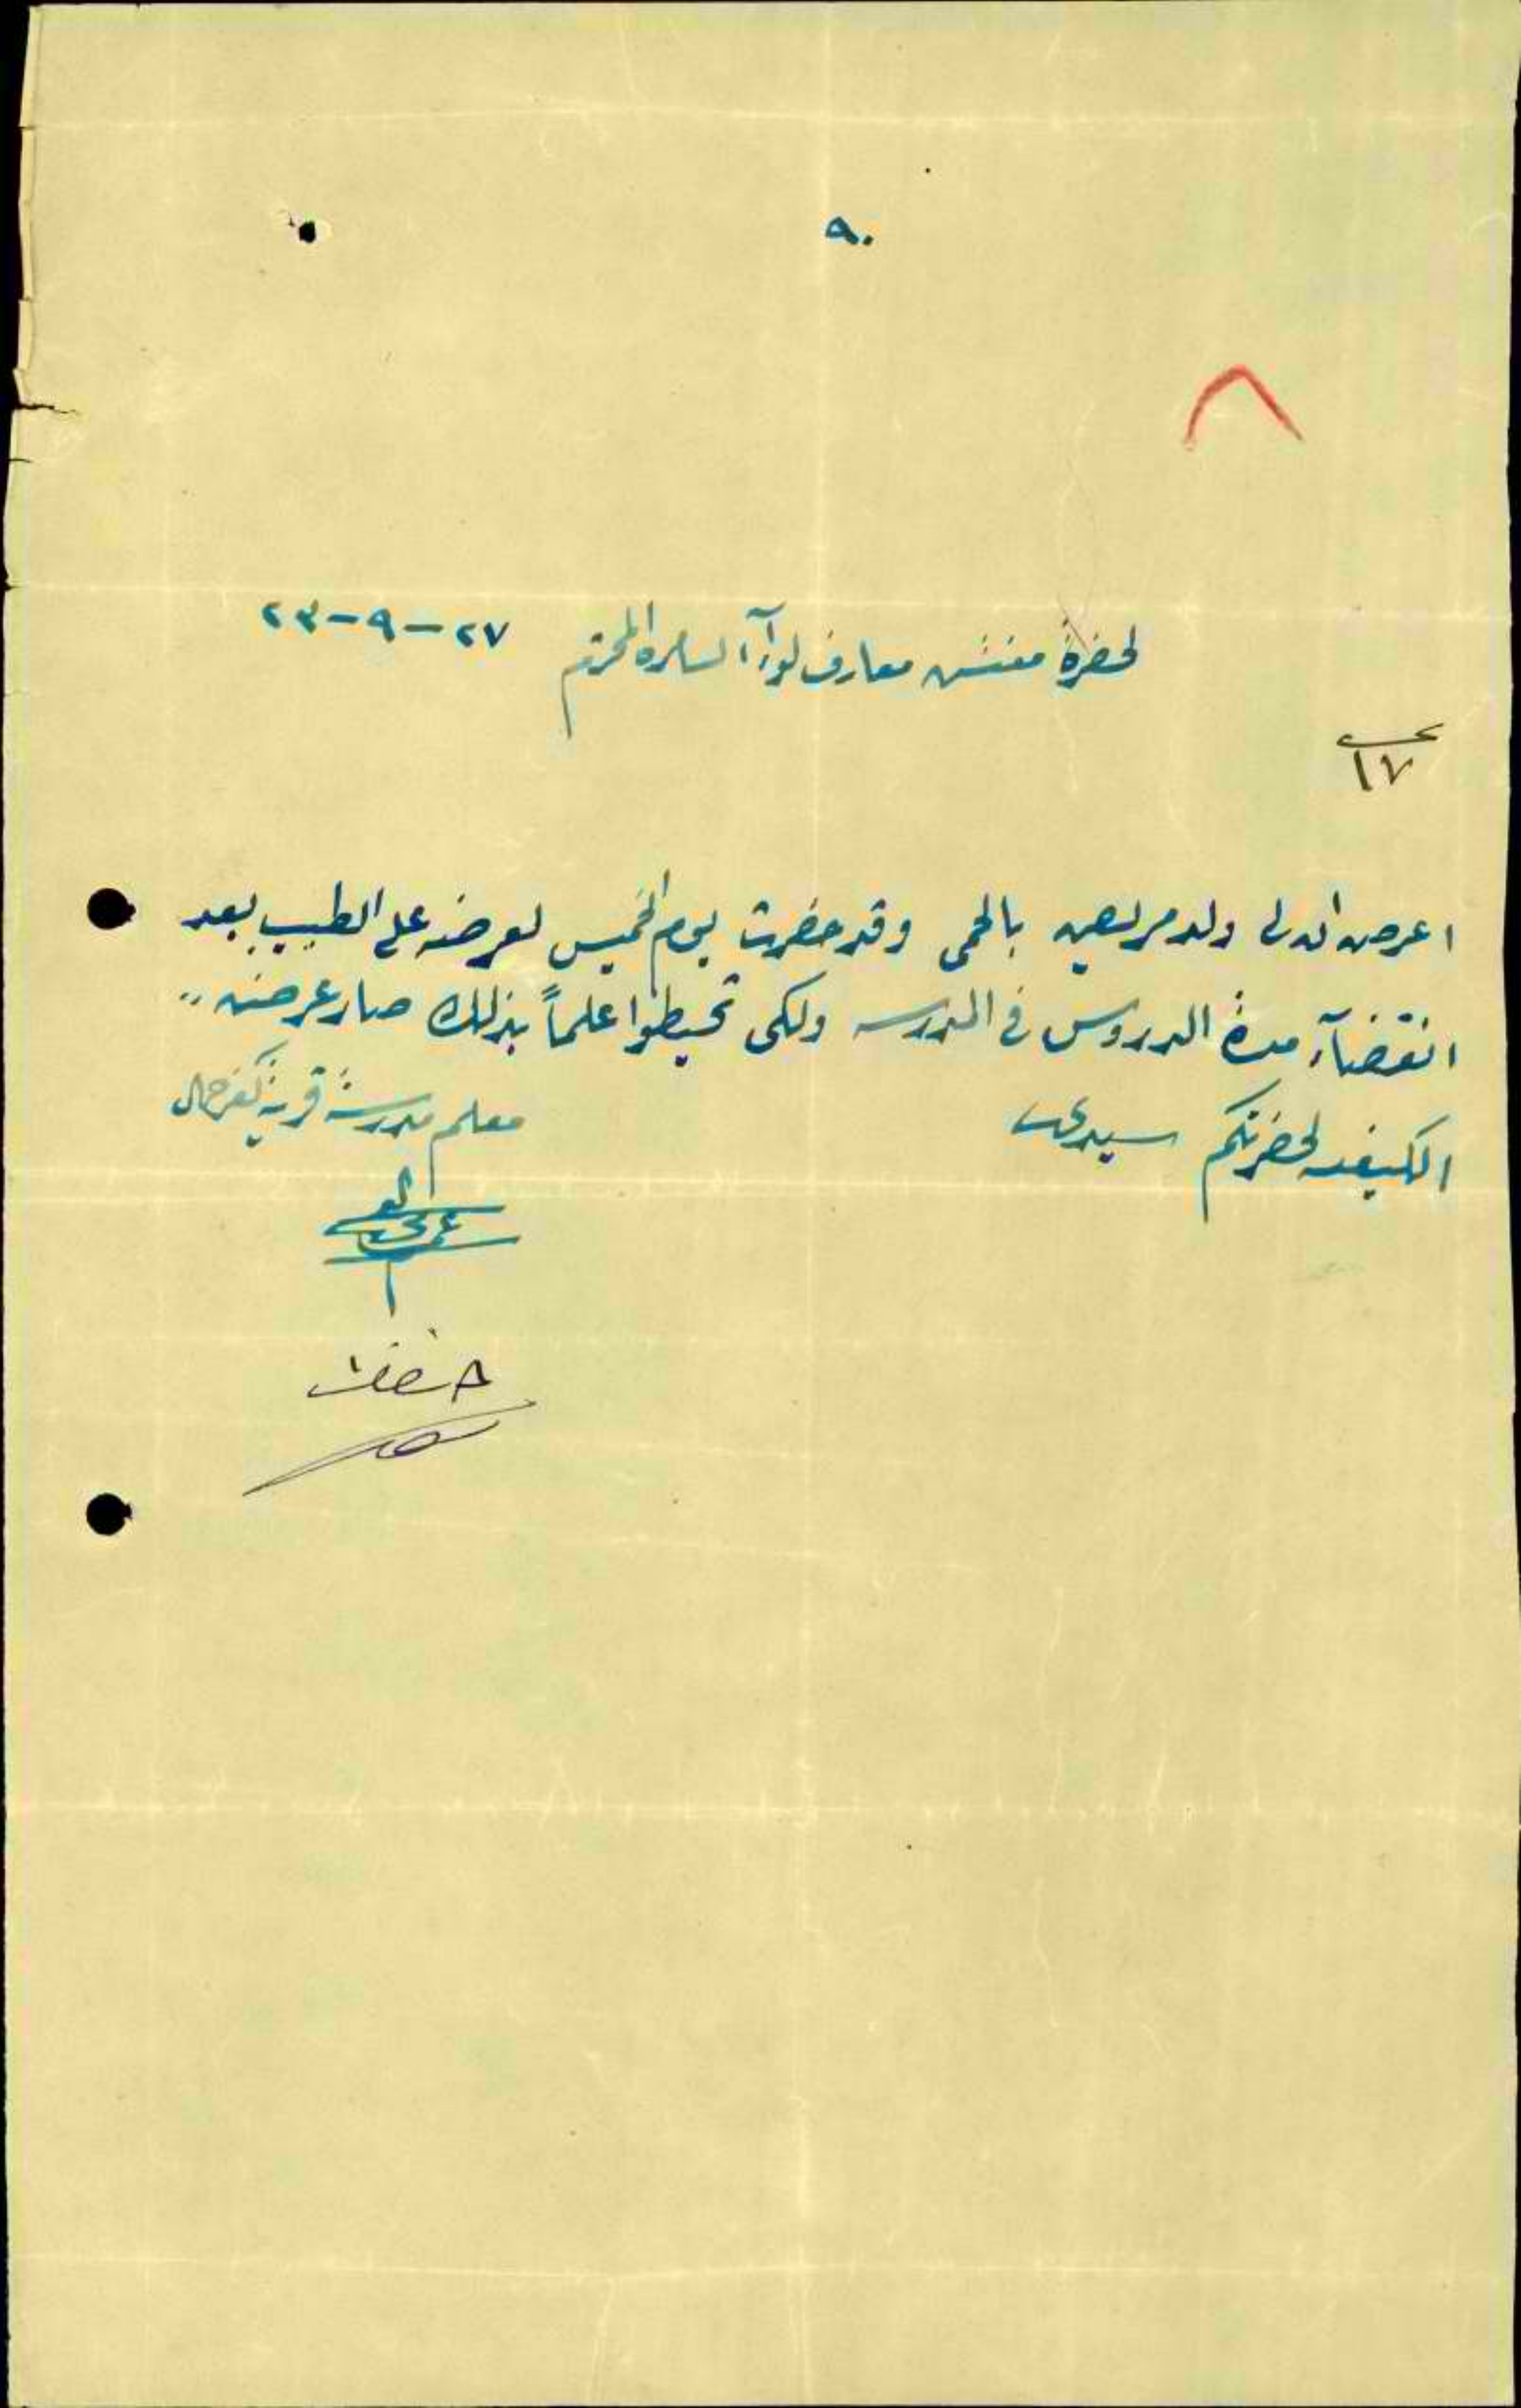 ٩٠
٨
لحضرة مفتش معارف لوآء السامره المحترم ٢٧-٩-٢٣
١٧
اعرض ان لي ولد مريض بالحمى وقد حضرت يوم الخميس لعرضه على الطبيب بعد
انقضآء مدة الدروس في المدرسه ولكي تحيطوا علماً بذلك صار عرضنه
الكيفيه لحضرتكم سيدي
معلم مدرسة قرية كفر جمال
حفظ